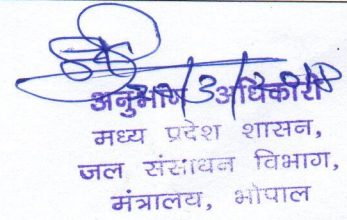 अनुभाग अधिकारी
मध्य प्रदेश शासन,
जल संसाधन विभाग,
मंत्रालय, भोपाल